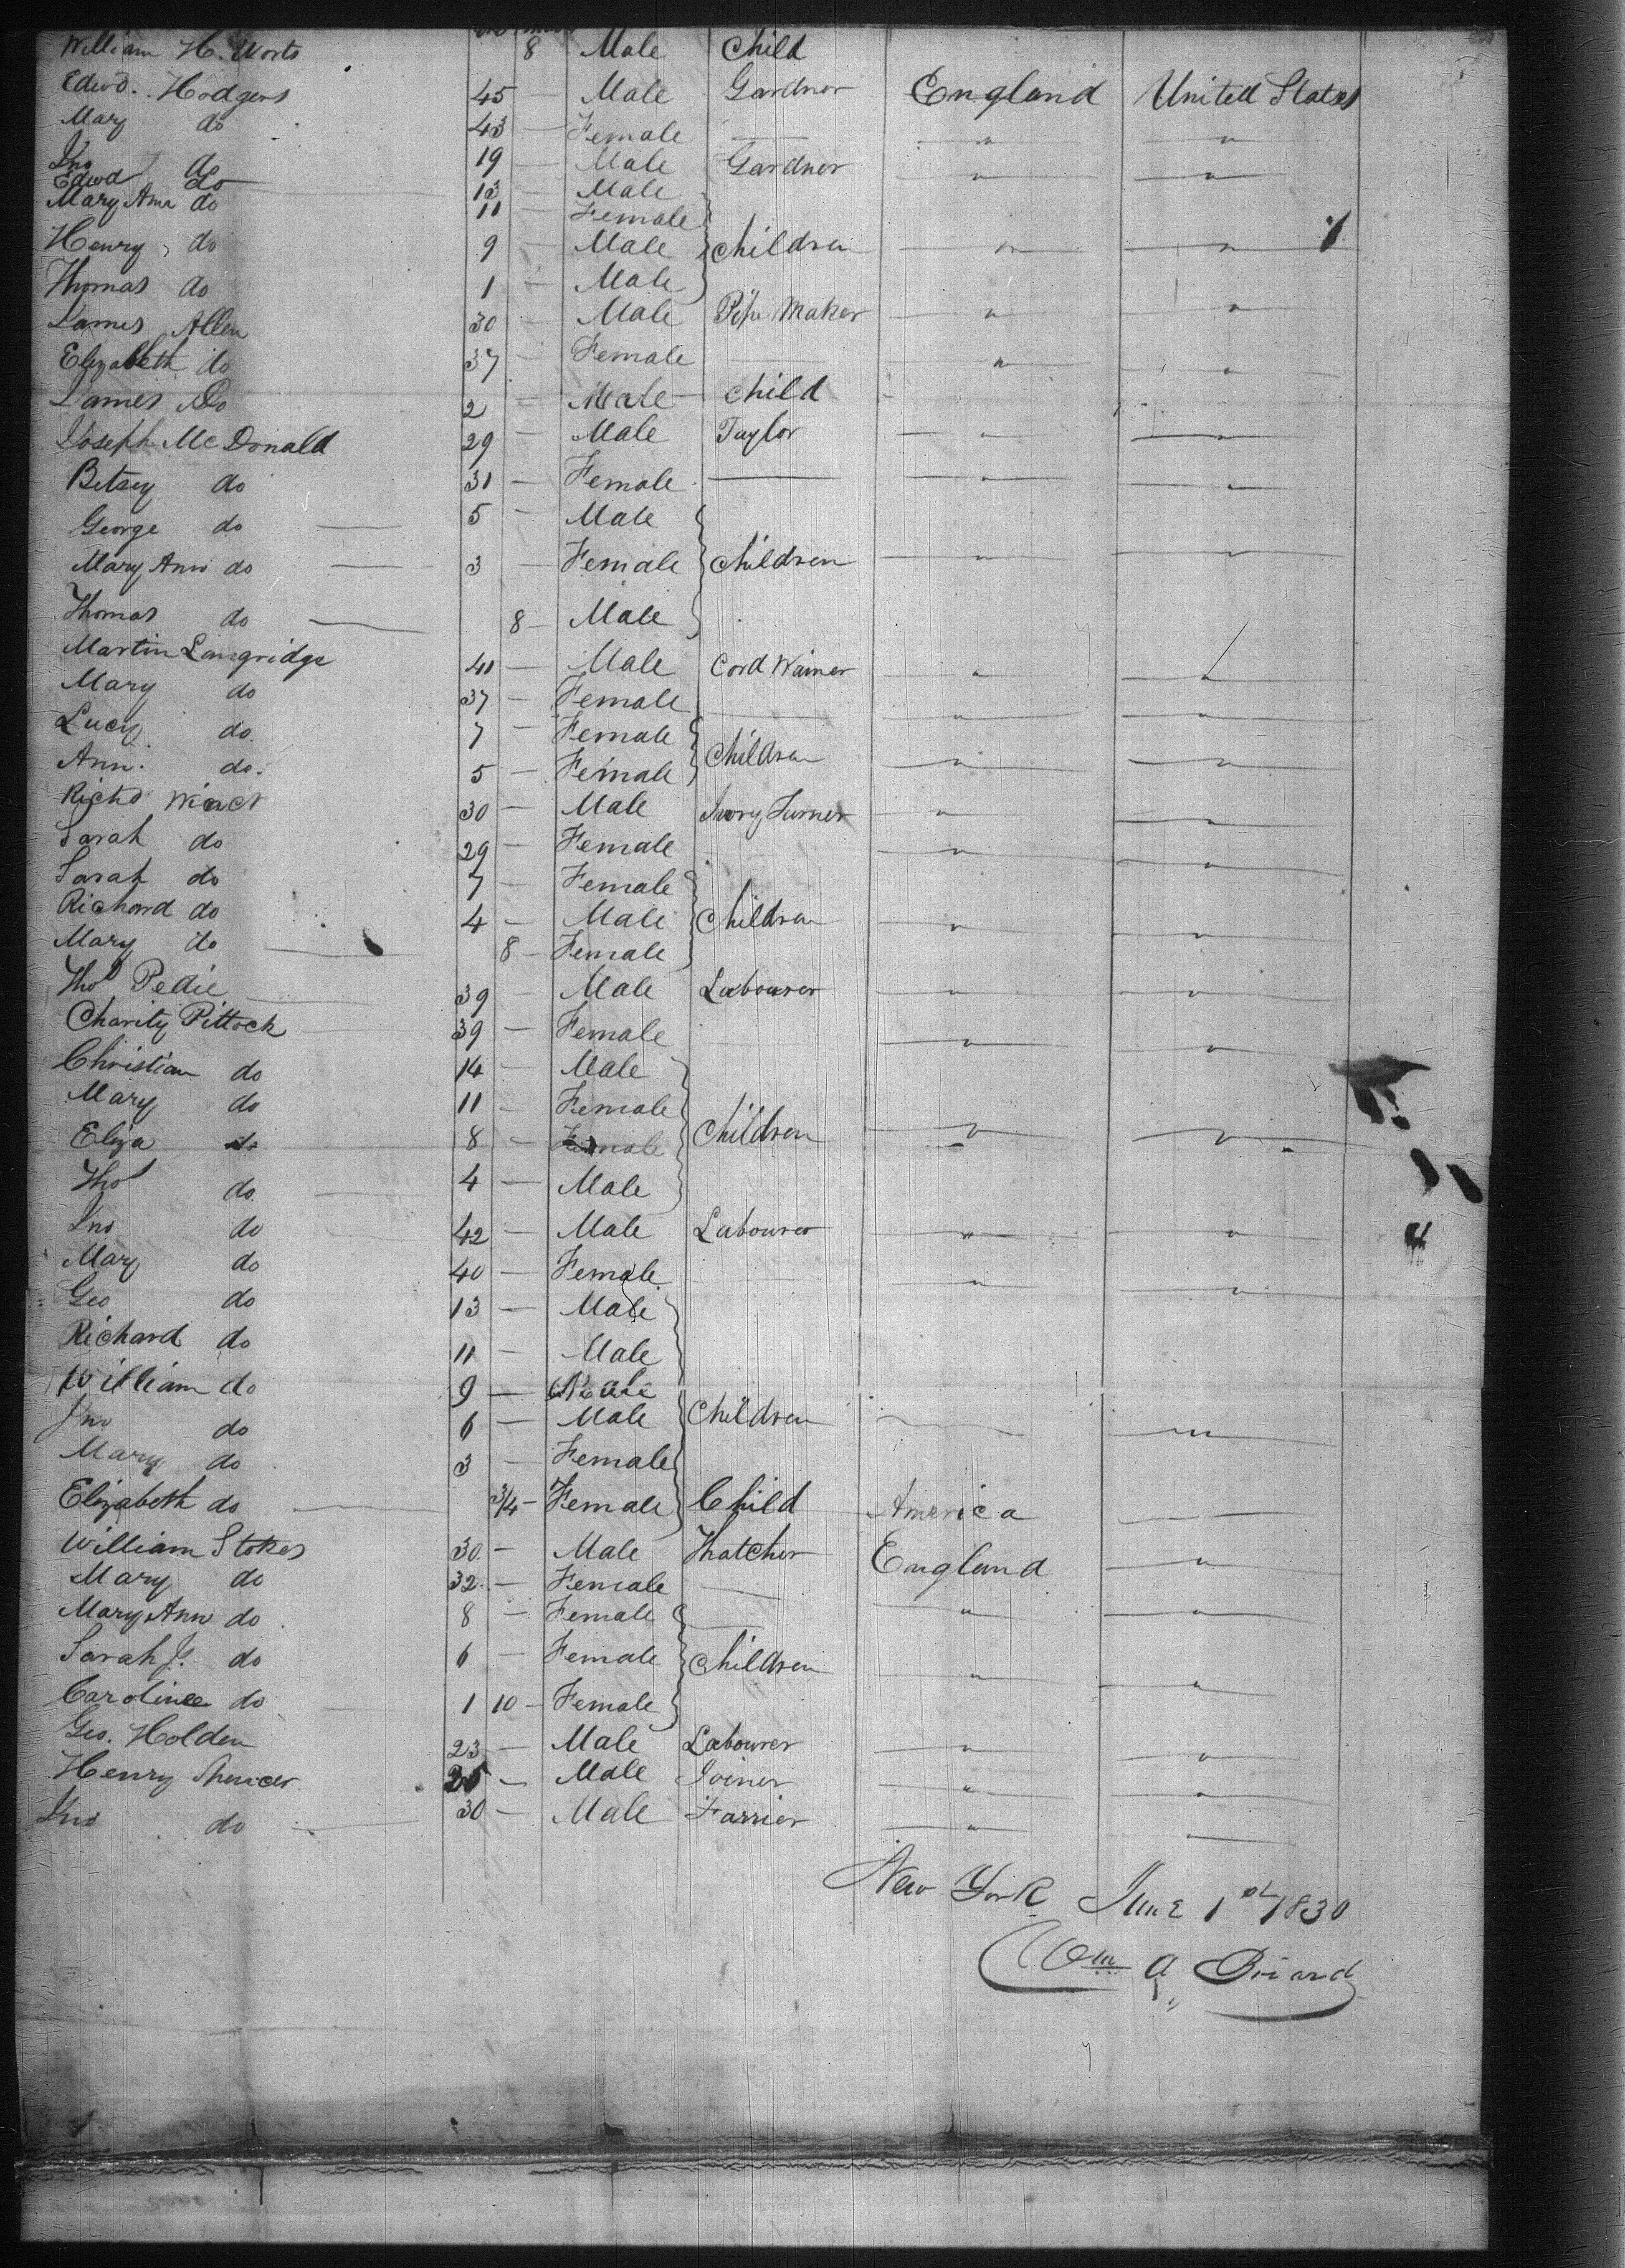 William H. Worts 8 Male Child
Edwd. Hodgers 45 — Male Gardner England United States
Mary do 43 — Female — " "
Jno do 19 — Male Gardner " "
Edwd do 13 — Male
Mary Ann do 11 — Female
Henry do 9 — Male Children " "
Thomas do 1 — Male
James Allen 30 — Male Pipe Maker " "
Elizabeth do 37 — Female " "
James Do 2 — Male Child
Joseph Mc Donald 29 — Male Taylor " "
Betsey do 31 — Female — " "
George do 5 — Male
Mary Ann do 3 — Female Children " "
Thomas do 8 — Male
Martin Langridge 41 — Male Cord Wainer " "
Mary do 37 — Female " "
Lucy do. 7 — Female
Ann. do. 5 — Female Children " "
Richd 30 — Male Ivory Turner " "
Sarah do 29 — Female " "
Sarah do 7 — Female
Richard do 4 — Male Children " "
Mary do 8 — Female
Thos Pedie 39 — Male Labourer " "
Charity Pittock 39 — Female " "
Christian do 14 — Male
Mary do 11 — Female
Eliza do 8 — Female Children " "
Thos do. 4 — Male
Jno do 42 — Male Labourer " "
Mary do 40 — Female " "
Geo do 13 — Male
Richard do 11 — Male
William do 9 — Male
Jno do 6 — Male Children "
Mary do 3 — Female
Elizabeth do 3/4 — Female Child America
William Stokes 30 — Male Thatcher England "
Mary do 32 — Female — " "
Mary Ann do 8 — Female
Sarah J. do 6 — Female Children " "
Caroline do 1 10 — Female
Geo. Holden 23 — Male Labourer " "
Henry Spencer 25 — Male Joiner " "
Jno do 30 — Male Farrier " "
New York June 1st 1830
Wm A